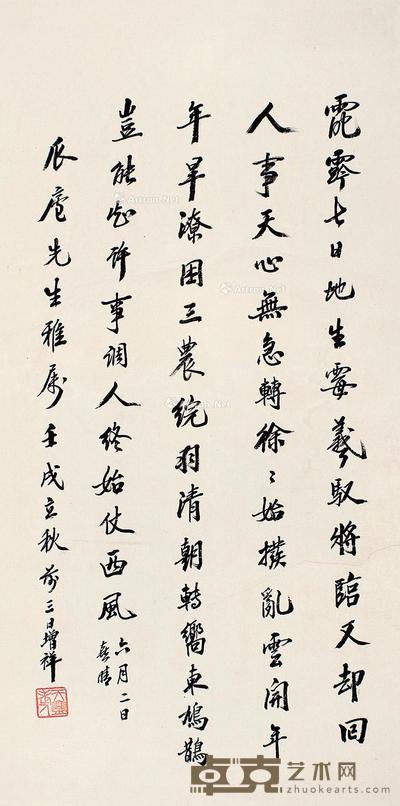 霓雩七日地生霉羲馭將臨又却回
人事天心無急轉徐〻始撥亂雲開年
年旱潦困三農綻羽清朝轉嚮東鳩鵲
豈能知許事調人終始仗西風
六月二日
喜晴
瓜廬先生雅屬壬戌立秋前三日增祥
卓克艺术网
www.zhuokearts.com